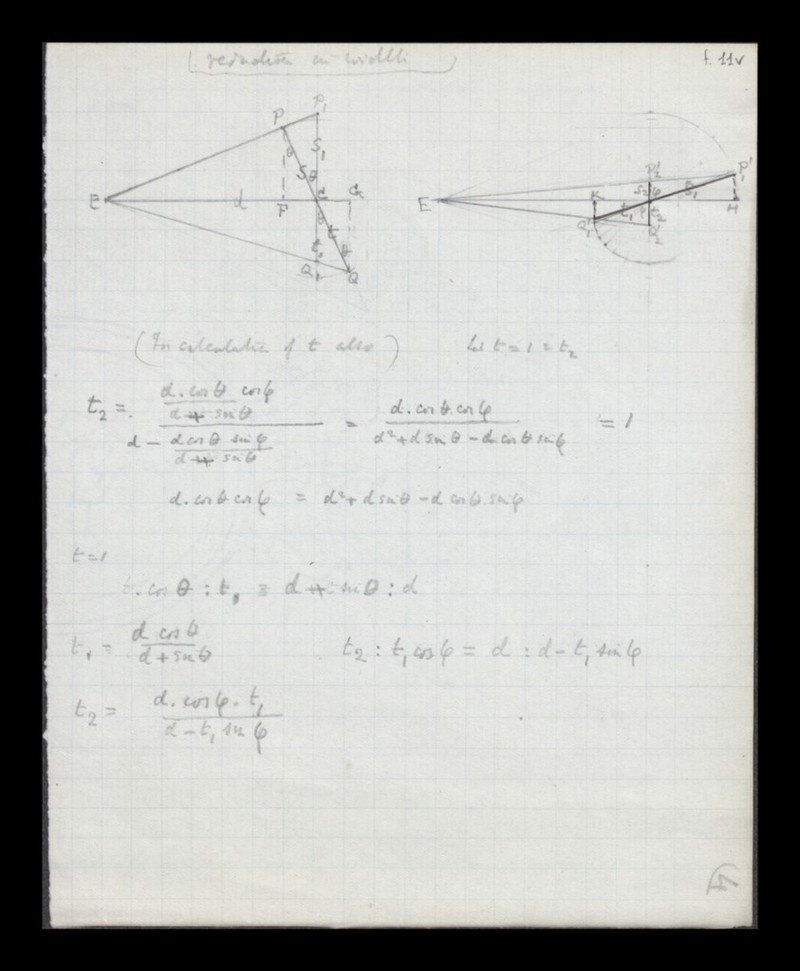 reduction in width
f. 11v
P P₁ S₁ θ S θ E d F K θ t t₁ Q₁ Q
E K Q₁' P₂' S₂ φ S₁ P₁' H t₁ t₂ Q₂'
(In calculation of t also) Let t = 1 = t₂
t₂ = (d . cos θ cos φ / d + sin θ) / (d - d cos θ sin φ / d + sin θ) = d . cos θ . cos φ / d² + d sin θ - d cos θ sin φ = 1
d . cos θ cos φ = d² + d sin θ - d cos θ sin φ
t = 1
t . cos θ : t₁ = d + t sin θ : d
t₁ = d cos θ / d + sin θ t₂ : t₁ cos φ = d : d - t₁ sin φ
t₂ = d . cos φ . t₁ / d - t₁ sin φ